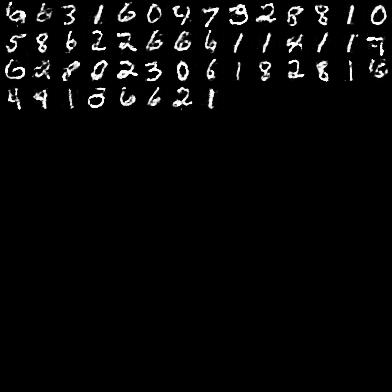 6 6 3 1 6 0 4 7 9 2 8 8 1 0
5 8 6 2 2 6 6 6 1 1 4 1 1 7
6 2 8 0 2 3 0 6 1 8 2 8 1
4 4 1 0 6 6 2 1